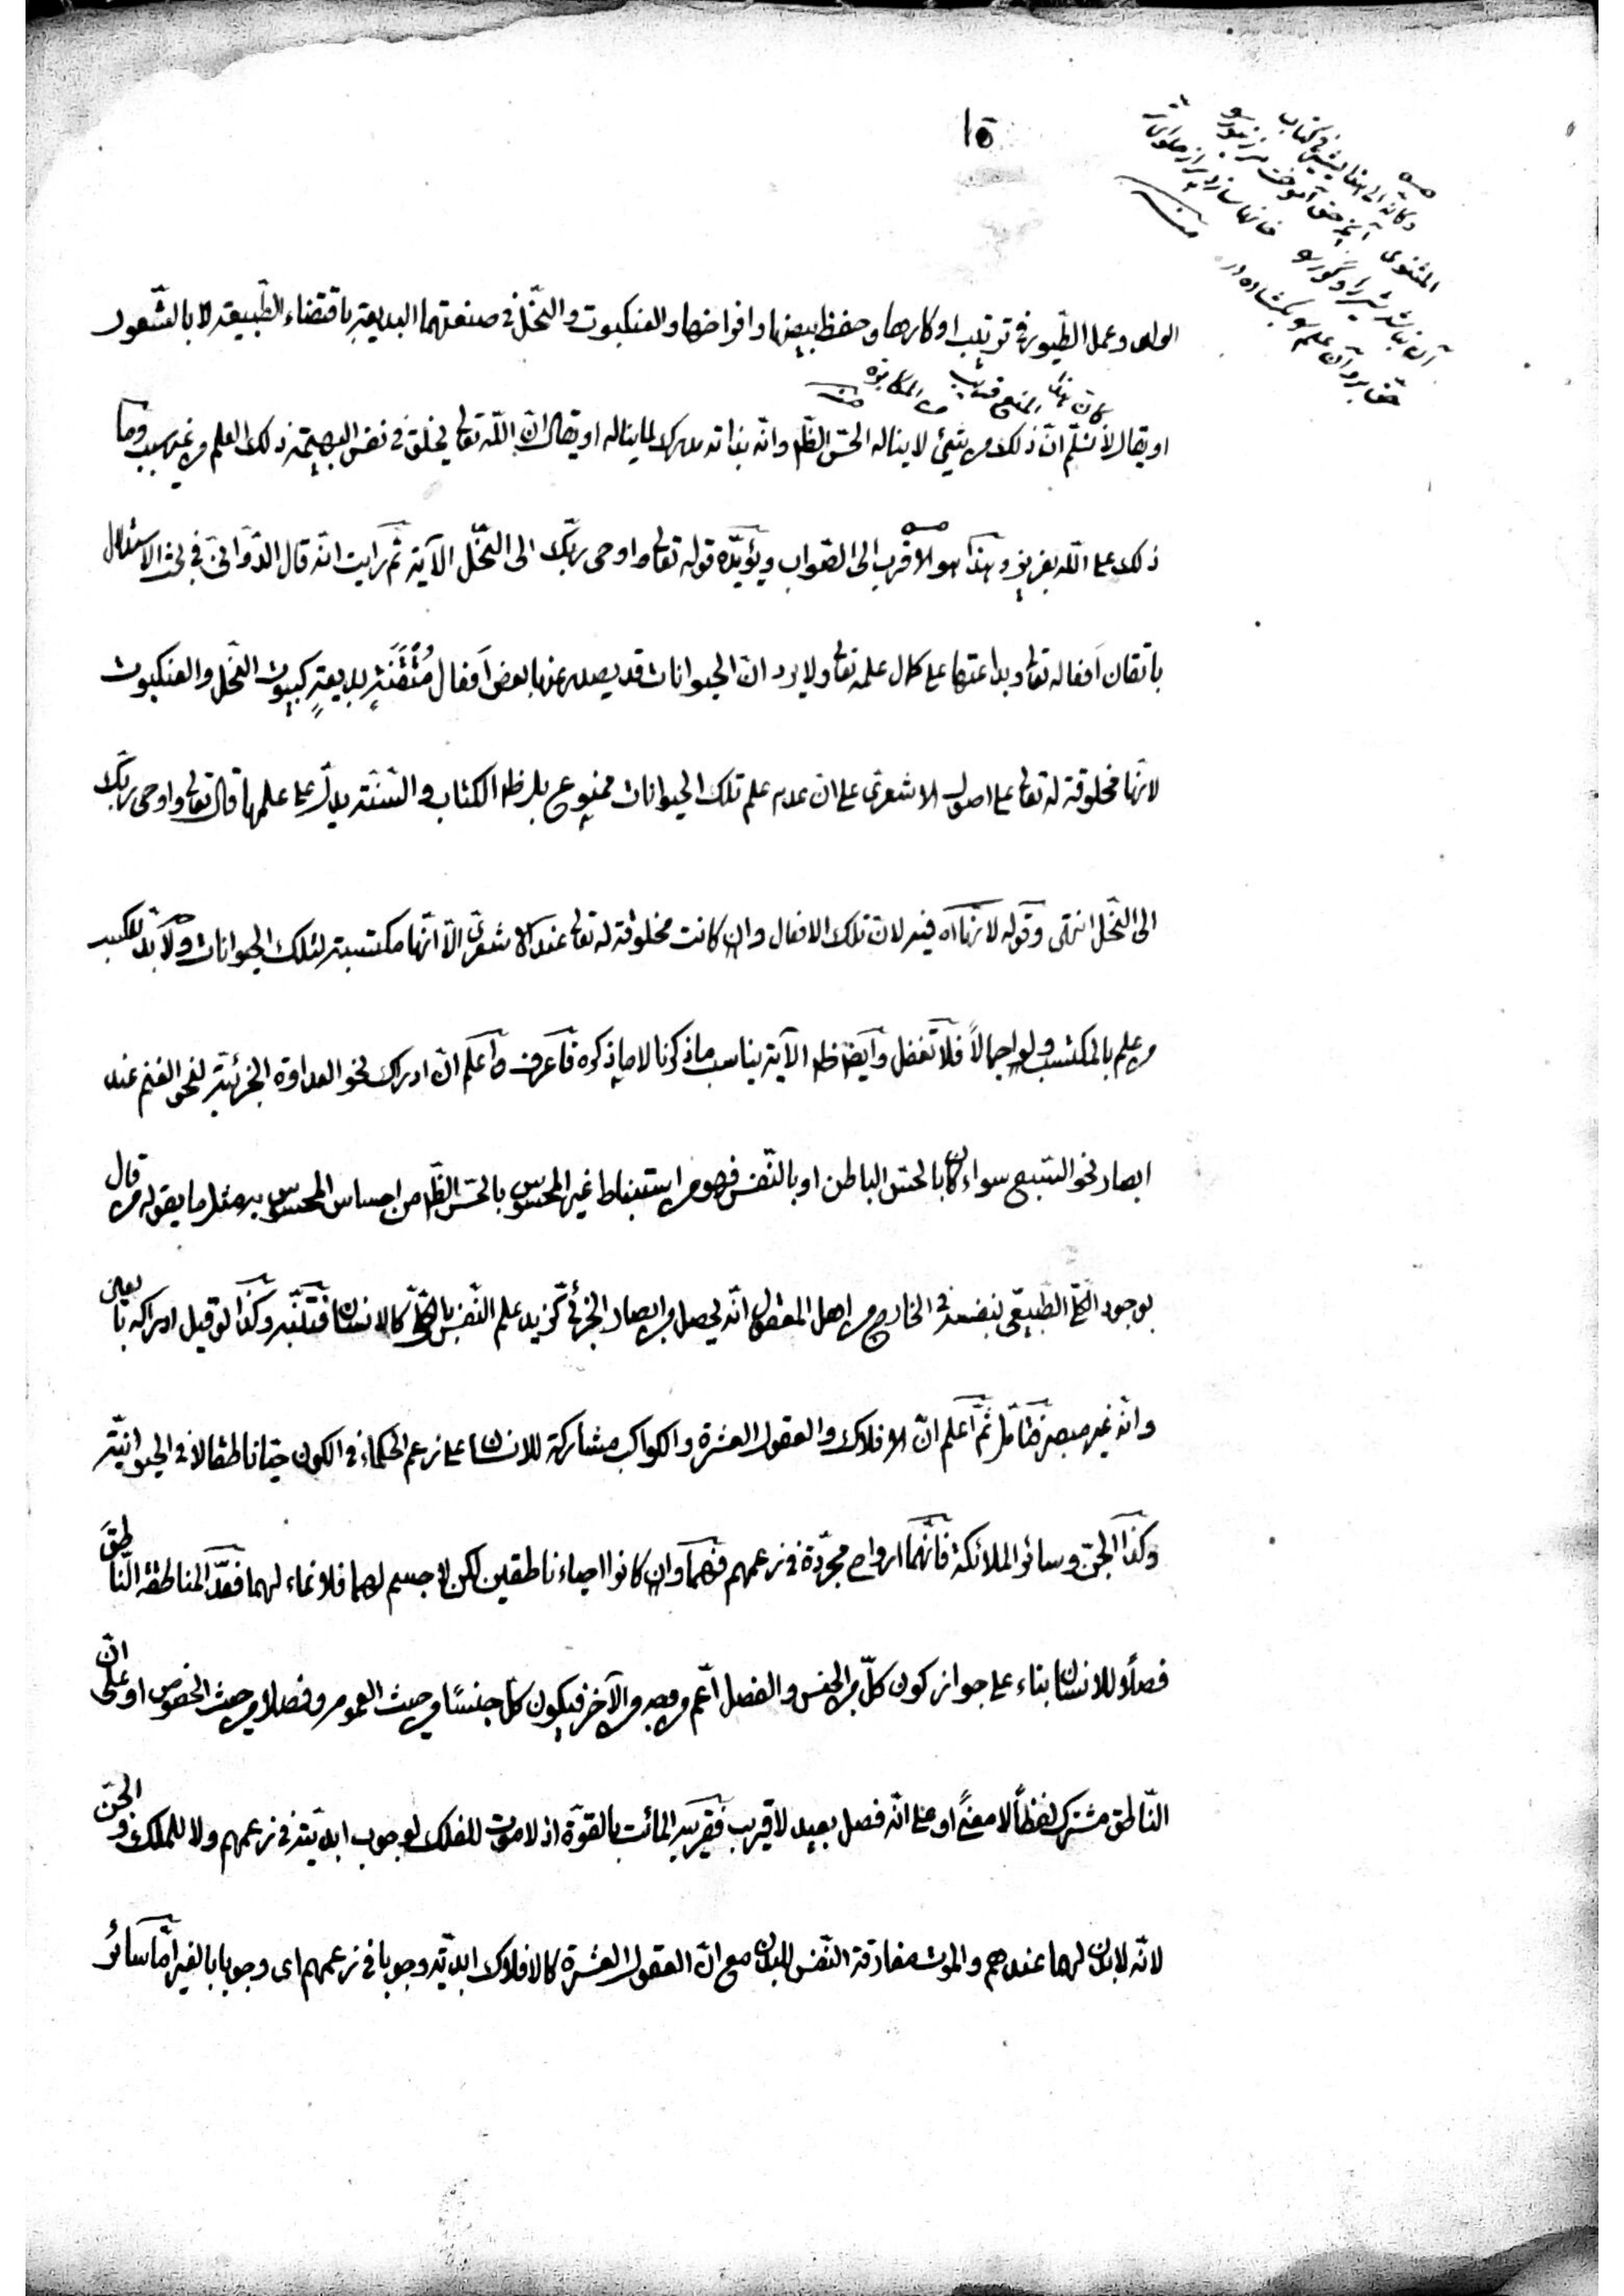 ١٥
وكأنه الى هذا يشير في كتاب
المثنوى آنچه حق آموخت مر زنبور را
آن نباشد شير را و گور را خانها سازد پر از حلواى تر
حق برو آن علم را بگشاد در منه
الولد وعمل الطّيور في ترتيب اوكارها وحفظ بيضها وافراخها والعنكبوت والنّحل في صنعتهما البديعة باقتضاء الطّبيعة لا بالشّعور
كان هذا المنع قريب من المكابرة منه
او يقال لا نسلّم انّ ذلك من شيئ لا يناله الحسّ الظّ وانّه بذاته مدرك لما يناله او يقال انّ اللّه تعالى يخلق في نفس البهيمة ذلك العلم من غير سبب وما
ذلك على اللّه بعزيز وهذا هو الاقرب الى الصّواب ويؤيّده قوله تعالى واوحى ربّك الى النّحل الآية ثمّ رايت انّه قال الدّوّانيّ في بحث الاستدلال
باتقان افعاله تعالى وبداعتها على كمال علمه تعالى ولا يرد انّ الحيوانات قد يصدر عنها بعض اَفعال مُتْقَنَةٍ بديعةٍ كبيوت النّحل والعنكبوت
لانّها مخلوقة له تعالى على اصول الاشعرى على انّ عدم علم تلك الحيوانات ممنوع بل ظ الكتاب والسّنّة يدلّ على علمها قال تعالى واوحى ربّك
الى النّحل انتهى وقوله لانّها اه فيه لانّ تلك الافعال وان كانت مخلوقة له تعالى عند الاشعرىّ الّا انّها مكتسبة لتلك الحيوانات ولا بدّ للكسب
من علم بالمكتسب ولو اجمالاً فلا تغفل وايضا ظ الآية يناسب ما ذكرنا لا ما ذكره فاعرف واعلم انّ ادراك نحو العداوة الجزئيّة لنحو الغنم عند
ابصار نحو السّبع سواء كان بالحسّ الباطن او بالنّفس فهو من استنباط غير المحسوس بالحسّ الظّ من احساس المحسوس به مثل ما يقوله من قال
بوجود الكلّى الطّبيعى بنفسه في الخارج من اهل المعقول انّه يحصل من ابصار الجزئى كزيد علم النّفس بالكلّى كالانسان فتنبّه وكذا لو قيل ادراكه بالعين
وانّه غير مبصر فتامّل ثمّ اعلم انّ الافلاك والعقول العشرة والكواكب مشاركة للانسان على زعم الحكماء في الكون حيّا ناطقا لا في الحيوانيّة
وكذا الجنّ وسائر الملائكة فانّهما ارواح مجرّدة في زعمهم فهما وان كانوا احياء ناطقين لكن لا جسم لهما فلا نماء لهما فعدّ المناطقة النّاطقَ
فصلًا للانسان بناء على جواز كون كلّ من الجنس والفصل اعمّ من وجه من الآخر فيكون كلّ جنسًا من حيث العموم وفصلا من حيث الخصوص او على انّ
النّاطق مشترك لفظًا لا معنًى او على انّه فصل بعيد لا قريب فقريبه المائت بالقوّة اذ لا موت للفلك لوجوب ابديّته في زعمهم ولا للملك والجنّ
لانّه لا بدن لهما عندهم والموت مفارقة النّفس للبدن مع انّ العقول العشرة كالافلاك ابديّة وجوبا في زعمهم اى وجوبا بالغير امّا سائر